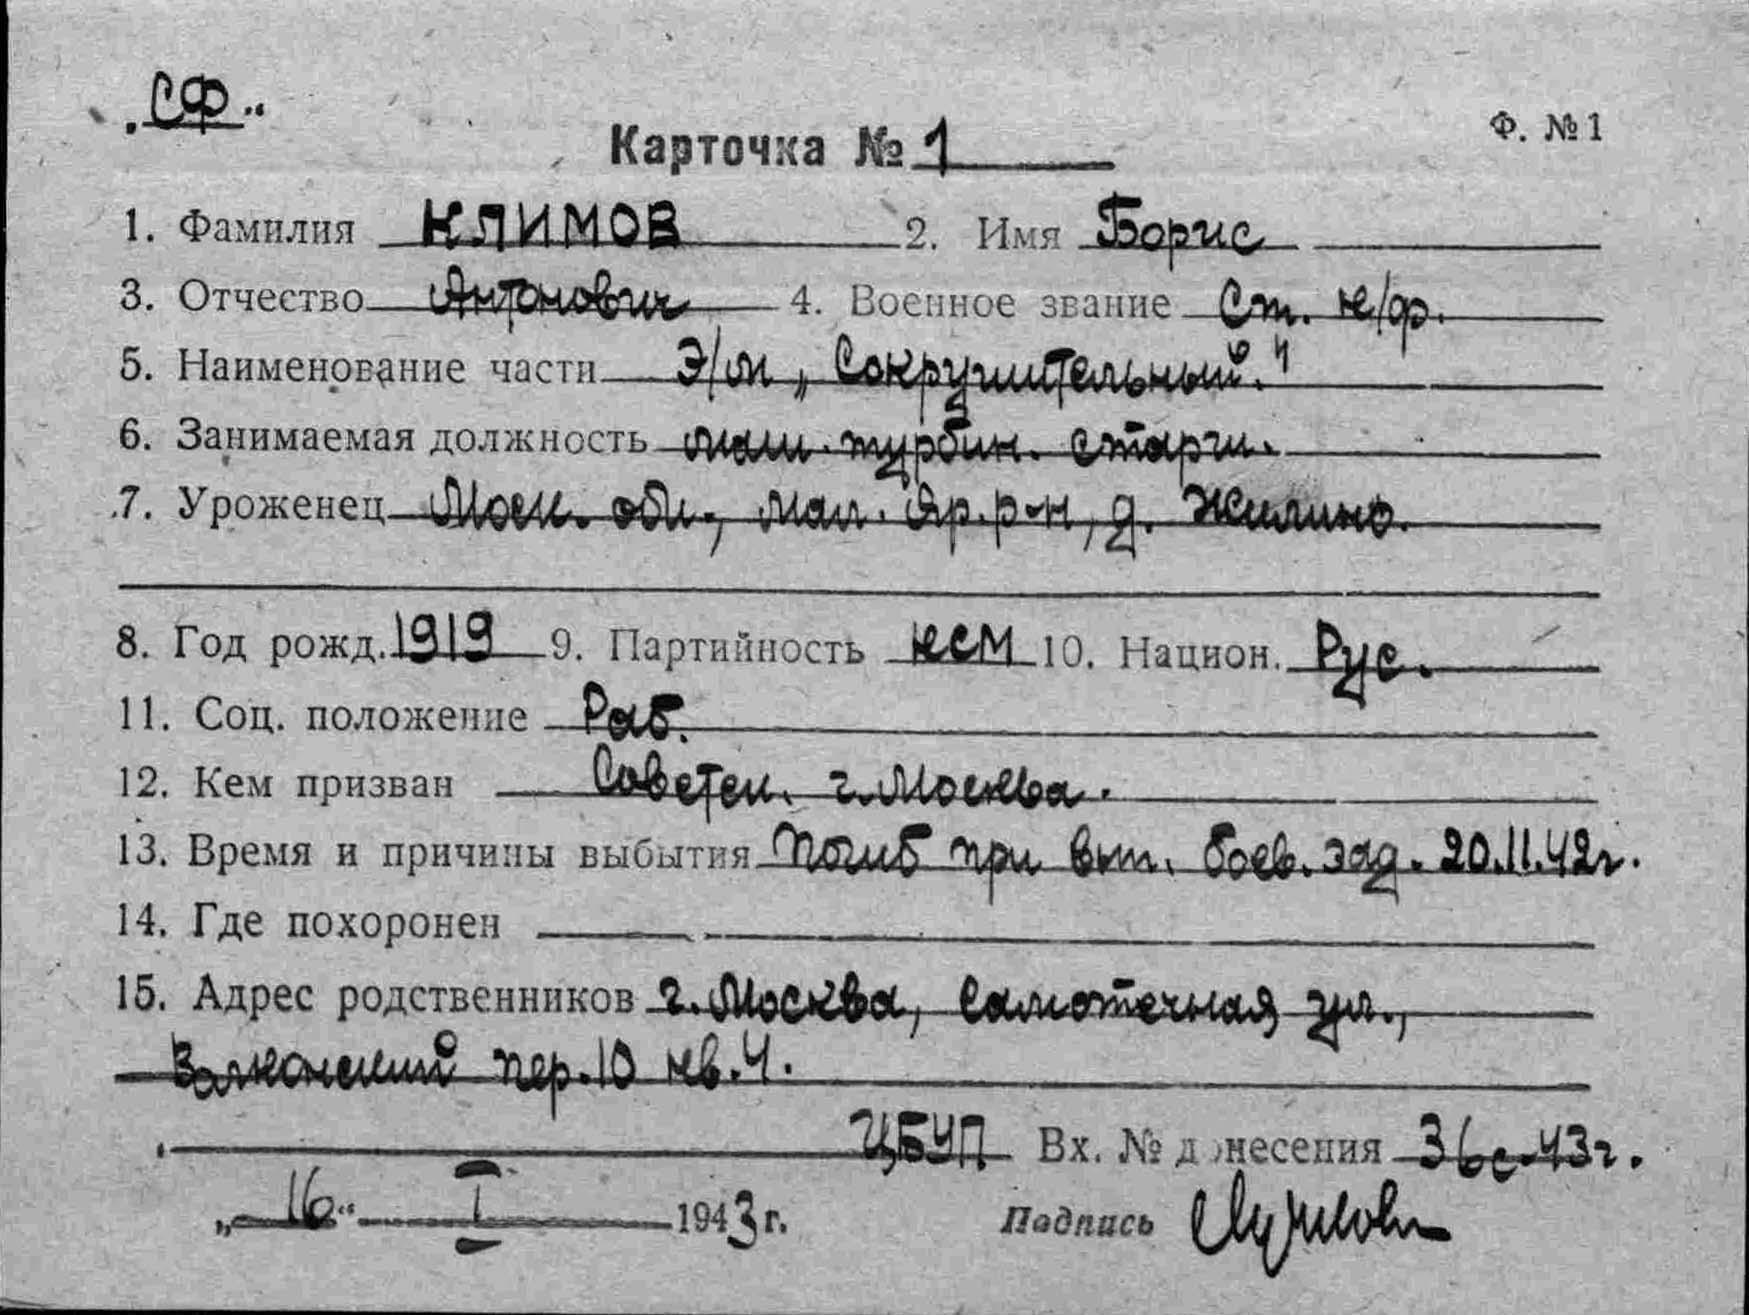 „СФ“
Ф. №1
Карточка № 1
1. Фамилия КЛИМОВ 2. Имя Борис
3. Отчество Антонович 4. Военное звание Ст. к/ф.
5. Наименование части Э/м „Сокрушительный."
6. Занимаемая должность маш. турбин. старш.
7. Уроженец Моск. обл., Мал. Яр. р-н, д. Жилино.
8. Год рожд. 1919 9. Партийность КСМ 10. Национ. Рус.
11. Соц. положение Раб.
12. Кем призван Советск. г. Москва.
13. Время и причины выбытия Погиб при вып. боев. зад. 20.11.42г.
14. Где похоронен
15. Адрес родственников г. Москва, Самотечная ул.,
Волконский пер. 10 кв. 4.
ЦБУП Вх. № донесения 36с-43г.
„16“ I 1943 г. Подпись